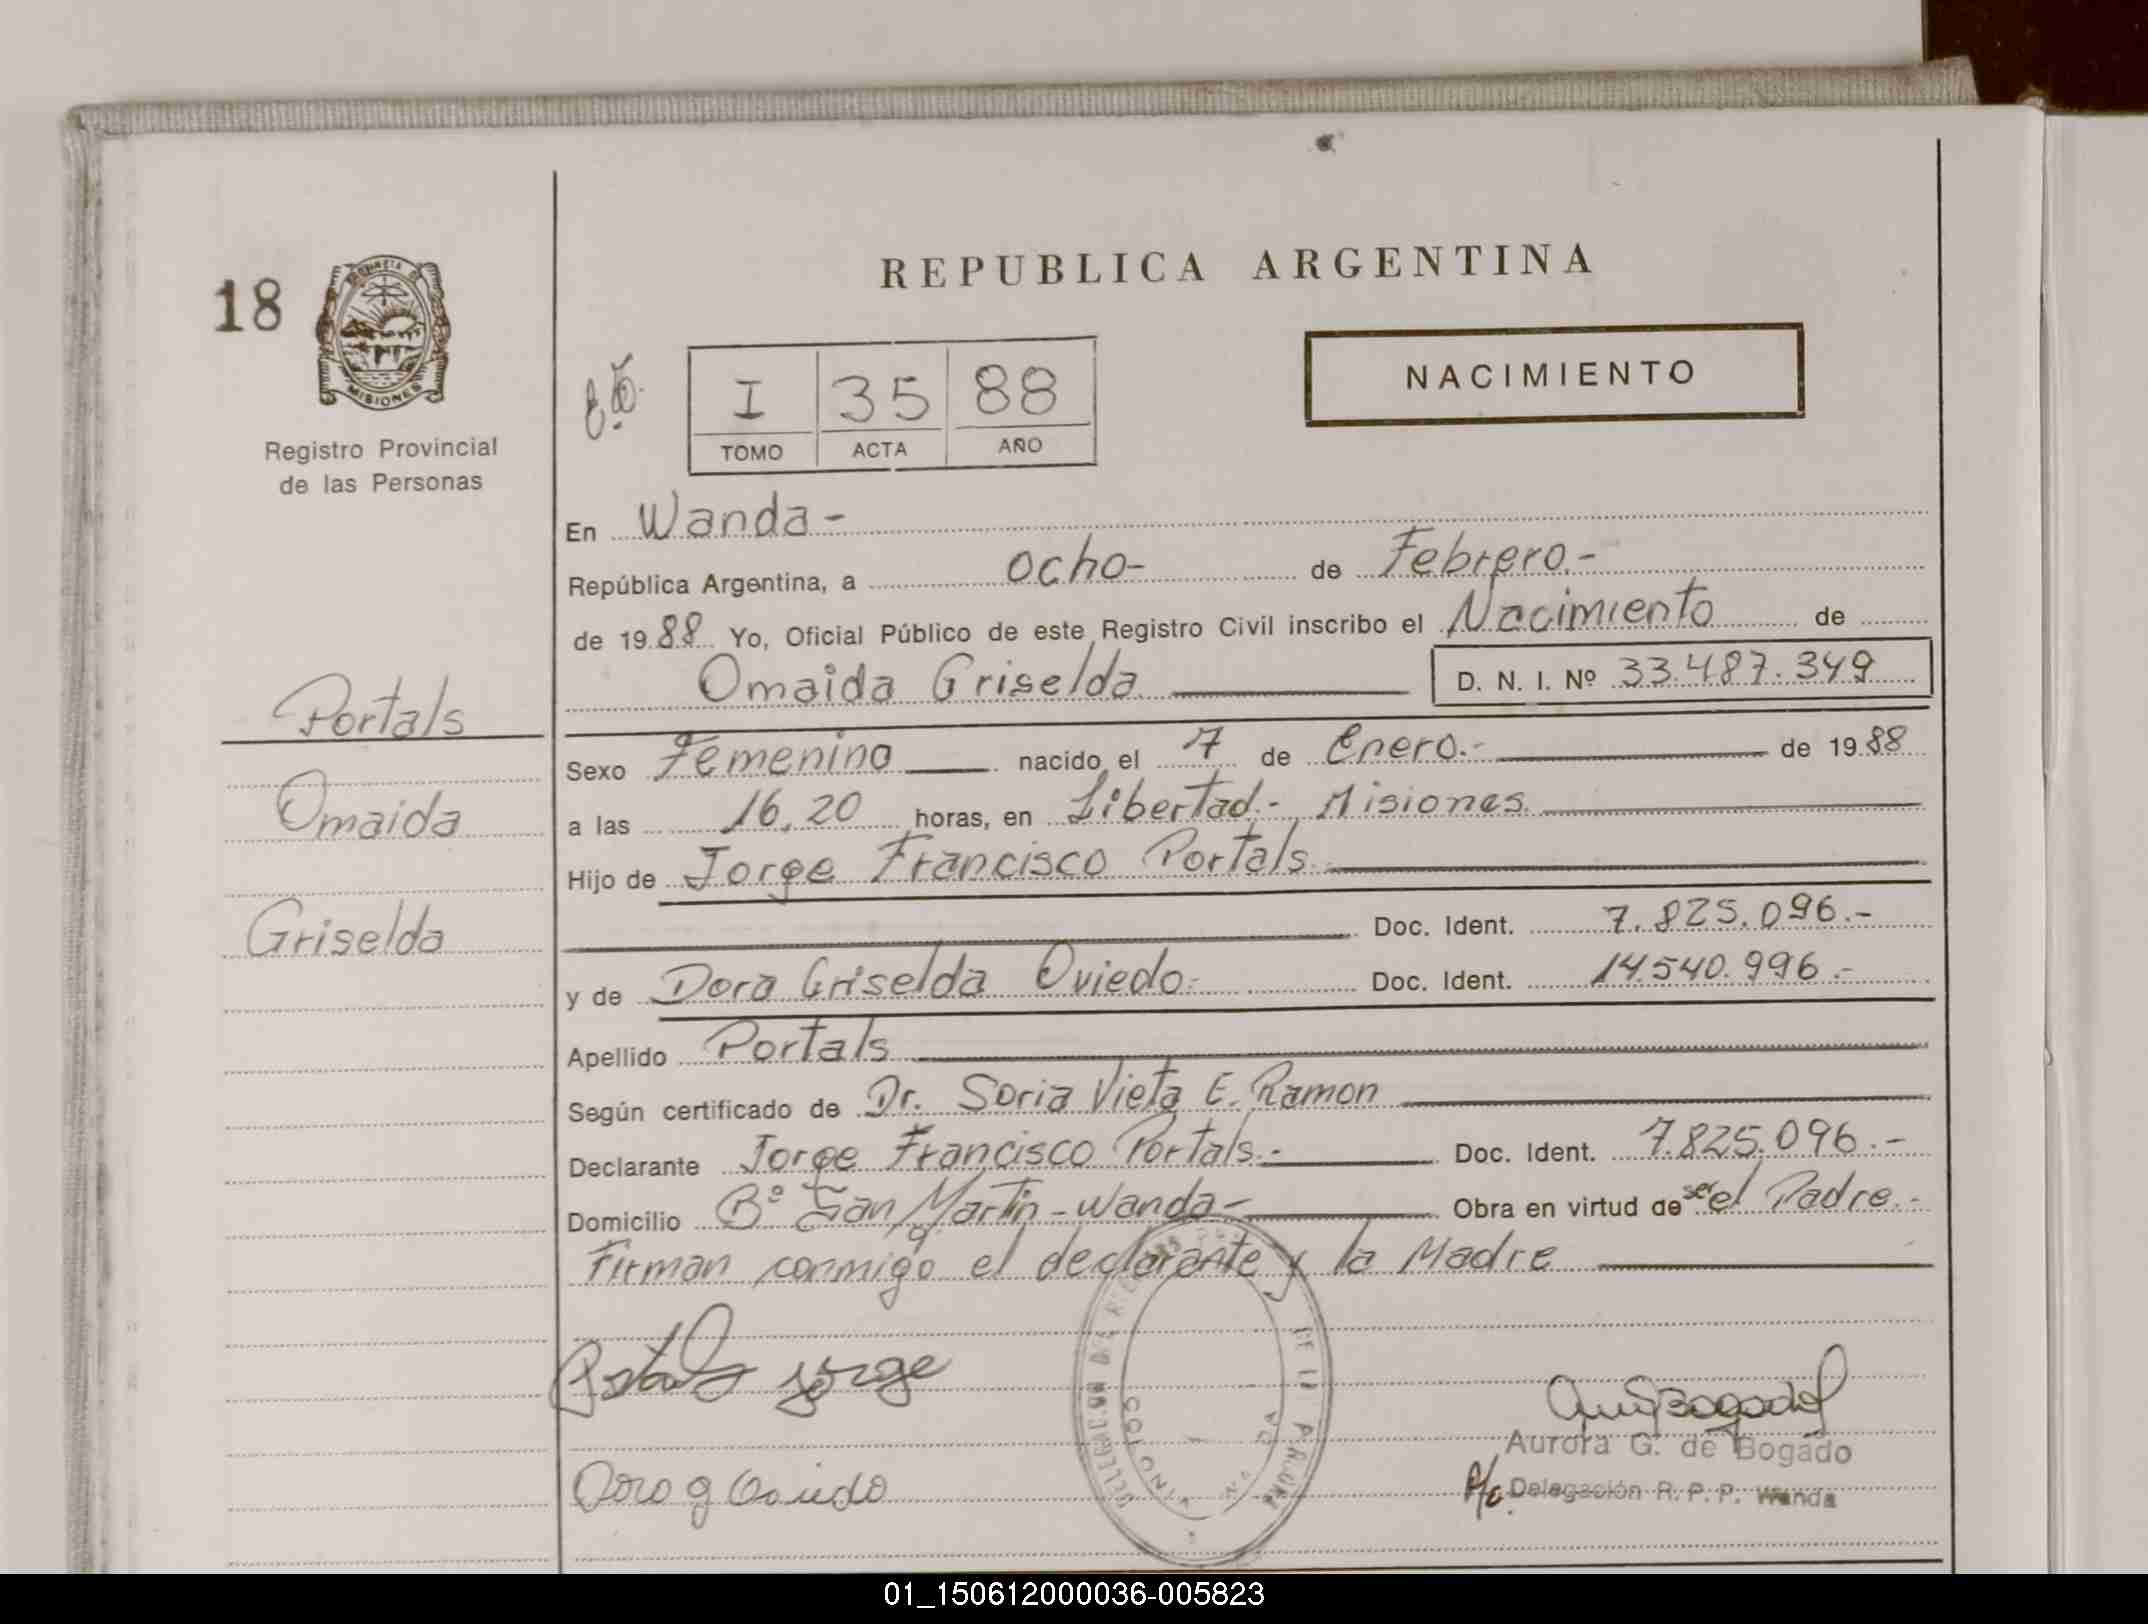 REPUBLICA ARGENTINA
18
PROVINCIA DE
MISIONES
Registro Provincial
de las Personas
I 35 88
TOMO ACTA AÑO
NACIMIENTO
En Wanda-
República Argentina, a ocho- de Febrero.-
de 1988 Yo, Oficial Público de este Registro Civil inscribo el Nacimiento de
Omaida Griselda D. N. I. Nº 33.487.349
Portals
Omaida
Griselda
Sexo Femenino nacido el 7 de Enero.- de 1988
a las 16,20 horas, en Libertad.- Misiones.
Hijo de Jorge Francisco Portals.
Doc. Ident. 7.825.096.-
y de Dora Griselda Oviedo.- Doc. Ident. 14.540.996.-
Apellido Portals
Según certificado de Dr. Soria Vieta E. Ramon
Declarante Jorge Francisco Portals.- Doc. Ident. 7.825.096.-
Domicilio Bº San Martin-Wanda- Obra en virtud de ser el Padre.-
Firman conmigo el declarante y la Madre
Portals Jorge
Dora g Oviedo
Aurora G. de Bogado
A/c. Delegación R. P. P. Wanda
01_150612000036-005823